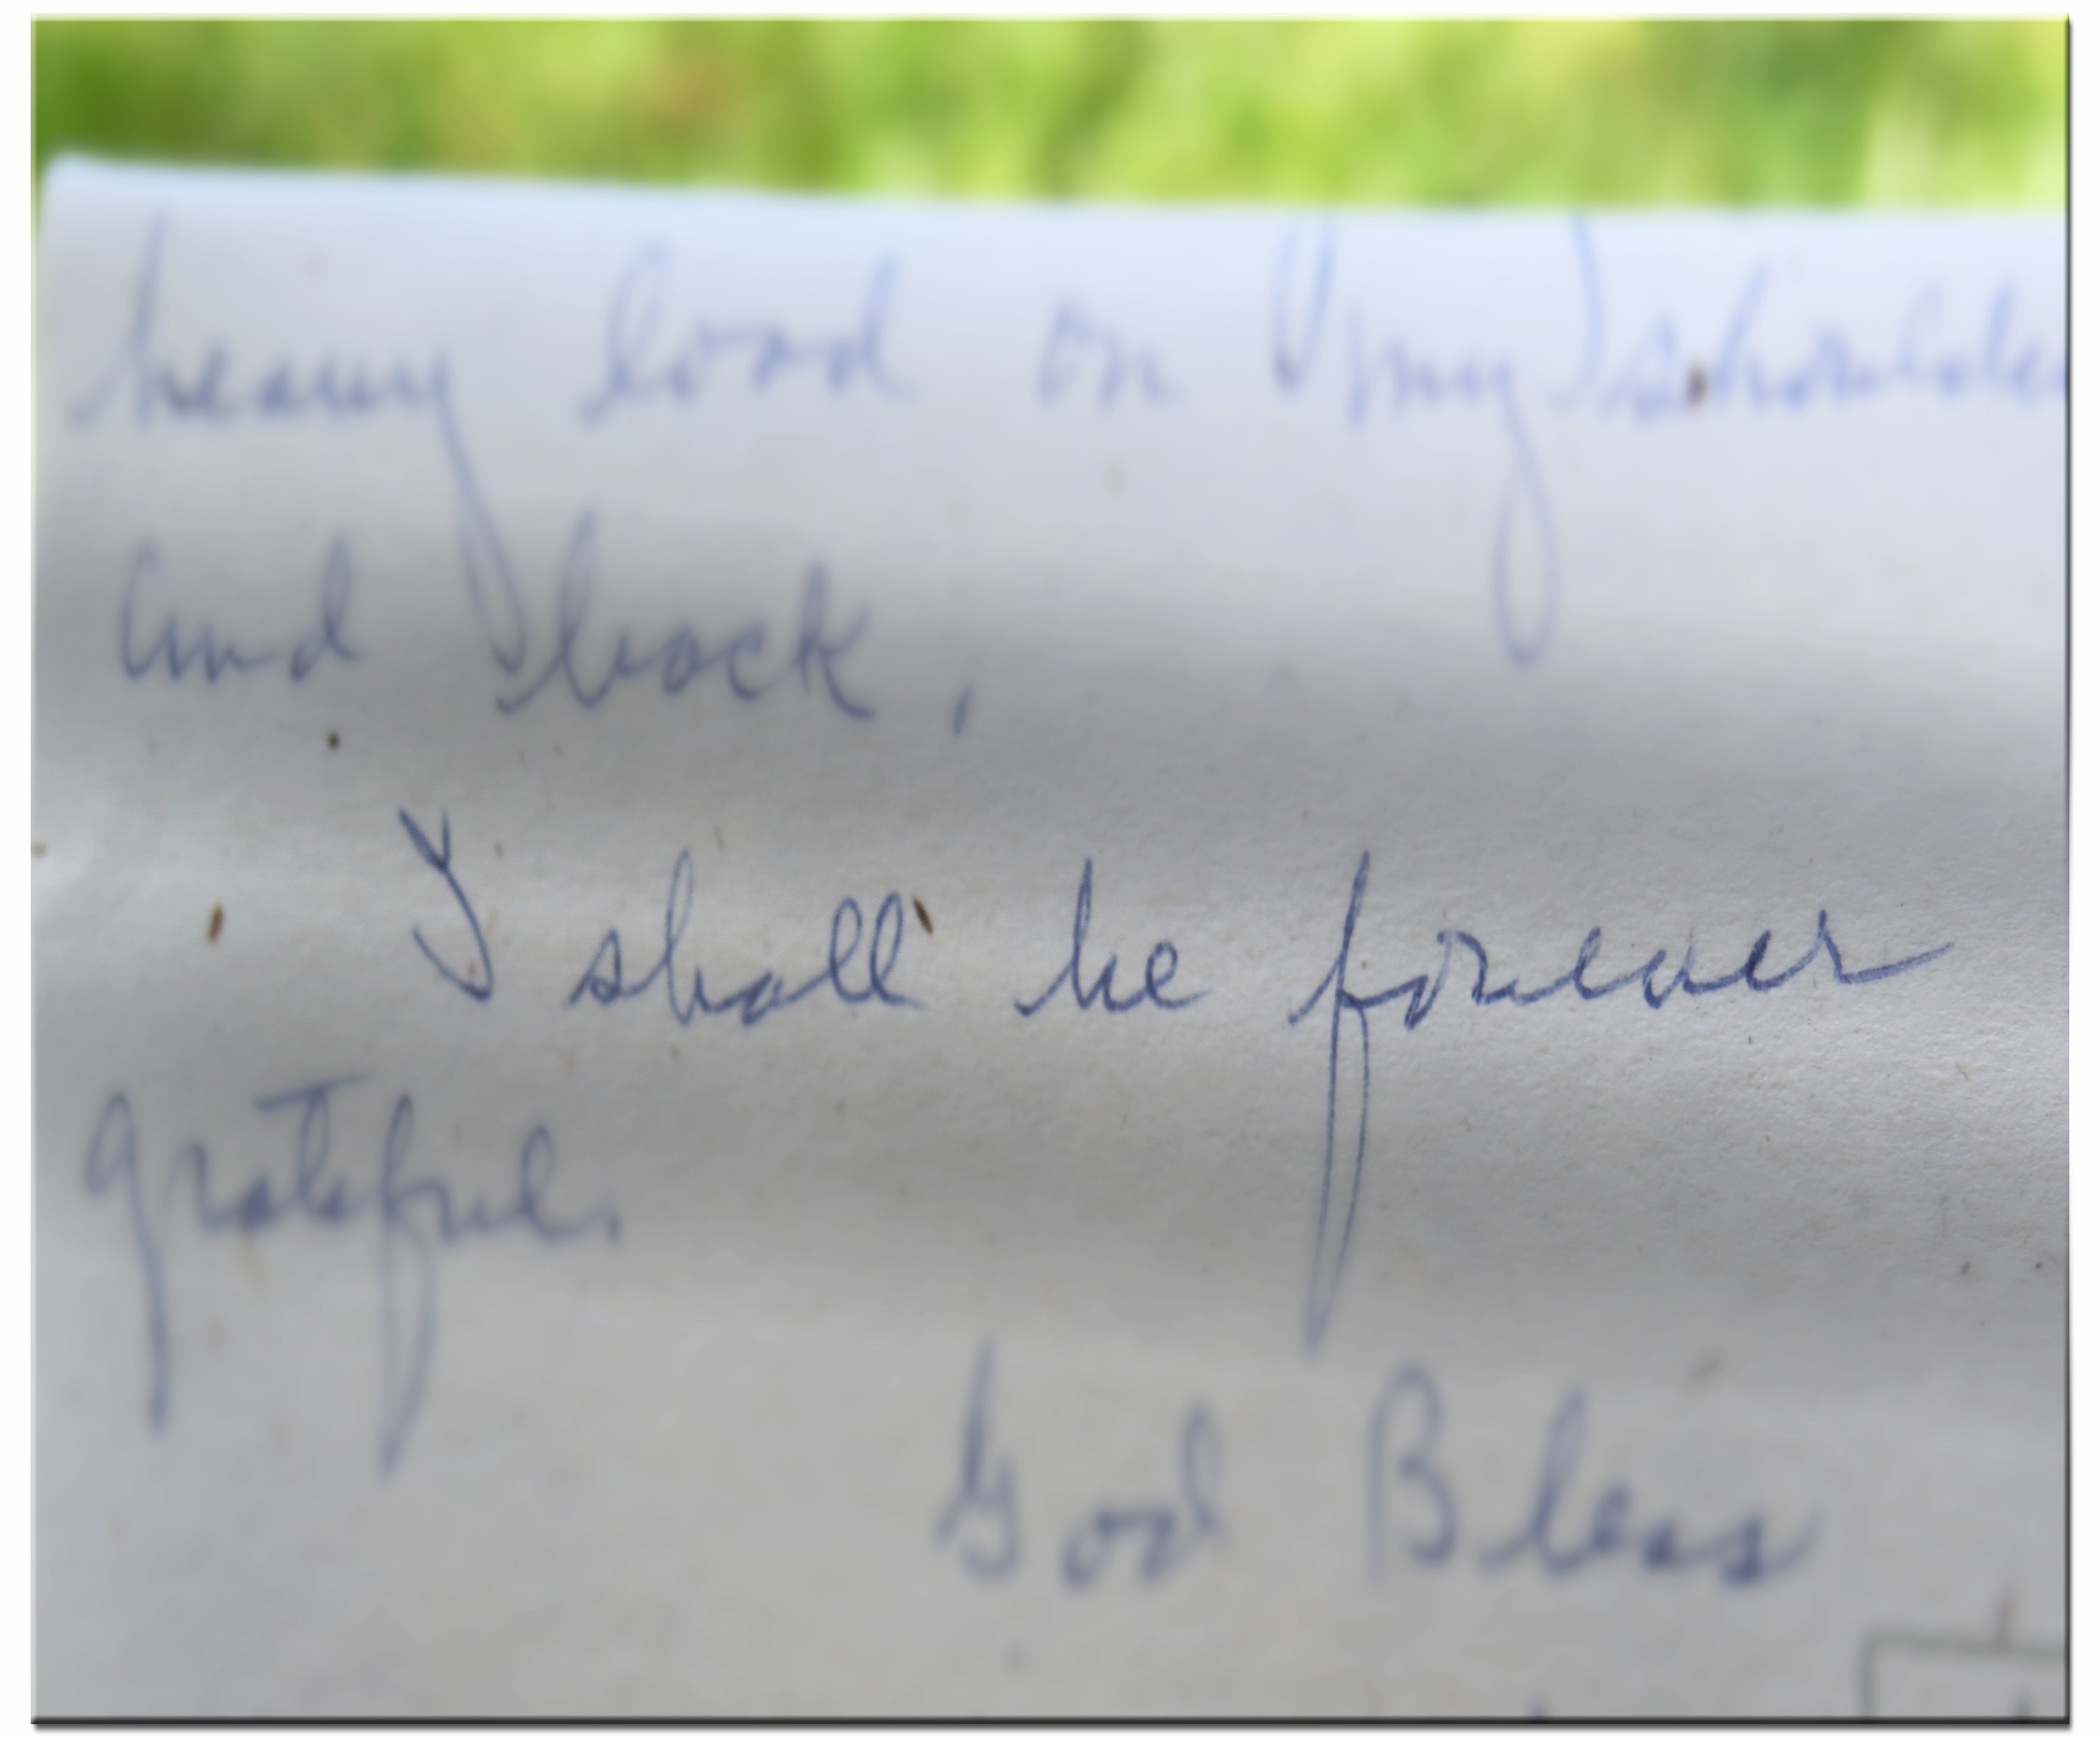 heavy load on my shoulder
and back,
I shall be forever
grateful.
God Bless